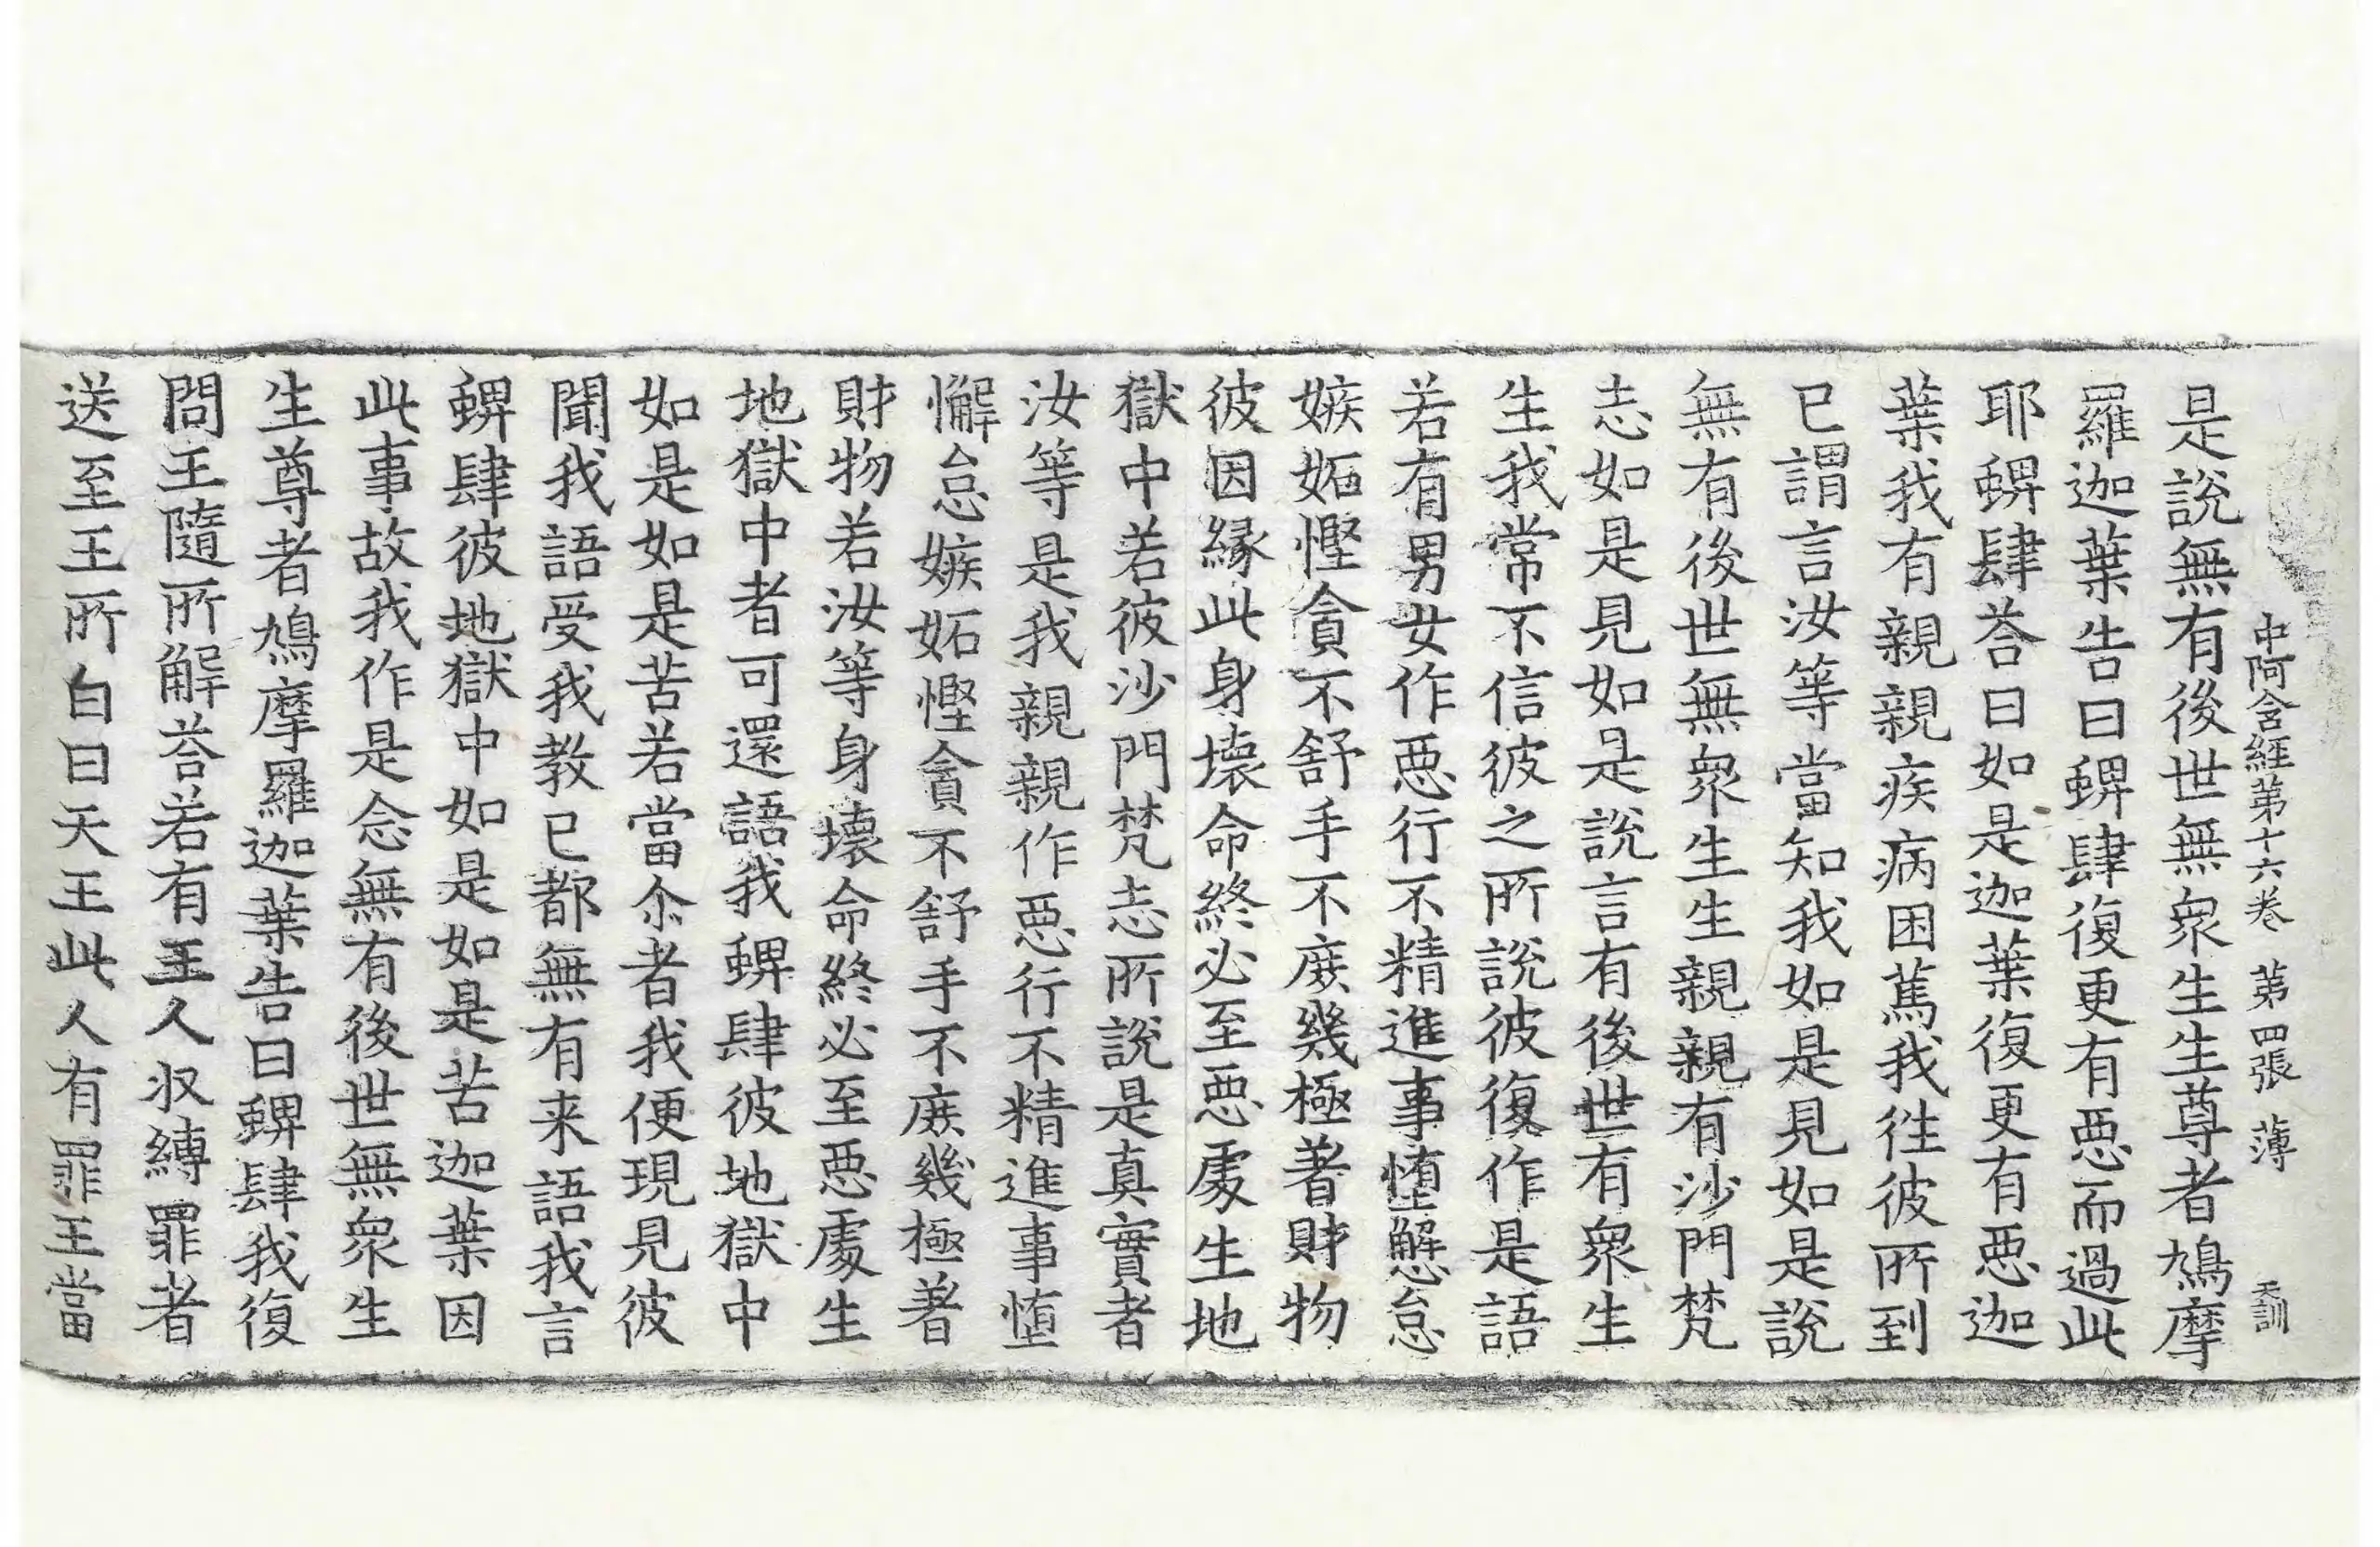 中阿含經第十六卷 第四張 薄 天訓
是說無有後世無衆生生尊者鳩摩
羅迦葉告曰蜱肆復更有惡而過此
耶蜱肆荅曰如是迦葉復更有惡迦
葉我有親親疾病困篤我徃彼所到
已謂言汝等當知我如是見如是說
無有後世無衆生生親親有沙門梵
志如是見如是說言有後世有衆生
生我常不信彼之所說彼復作是語
若有男女作惡行不精進事墮懈怠
嫉妬慳貪不舒手不庶幾極著財物
彼因緣此身壞命終必至惡處生地
獄中若彼沙門梵志所說是真實者
汝等是我親親作惡行不精進事墮
懈怠嫉妬慳貪不舒手不庶幾極著
財物若汝等身壞命終必至惡處生
地獄中者可還語我蜱肆彼地獄中
如是如是苦若當尒者我便現見彼
聞我語受我教已都無有来語我言
蜱肆彼地獄中如是如是苦迦葉因
此事故我作是念無有後世無衆生
生尊者鳩摩羅迦葉告曰蜱肆我復
問王隨所解荅若有王人収縛罪者
送至王所白曰天王此人有罪王當